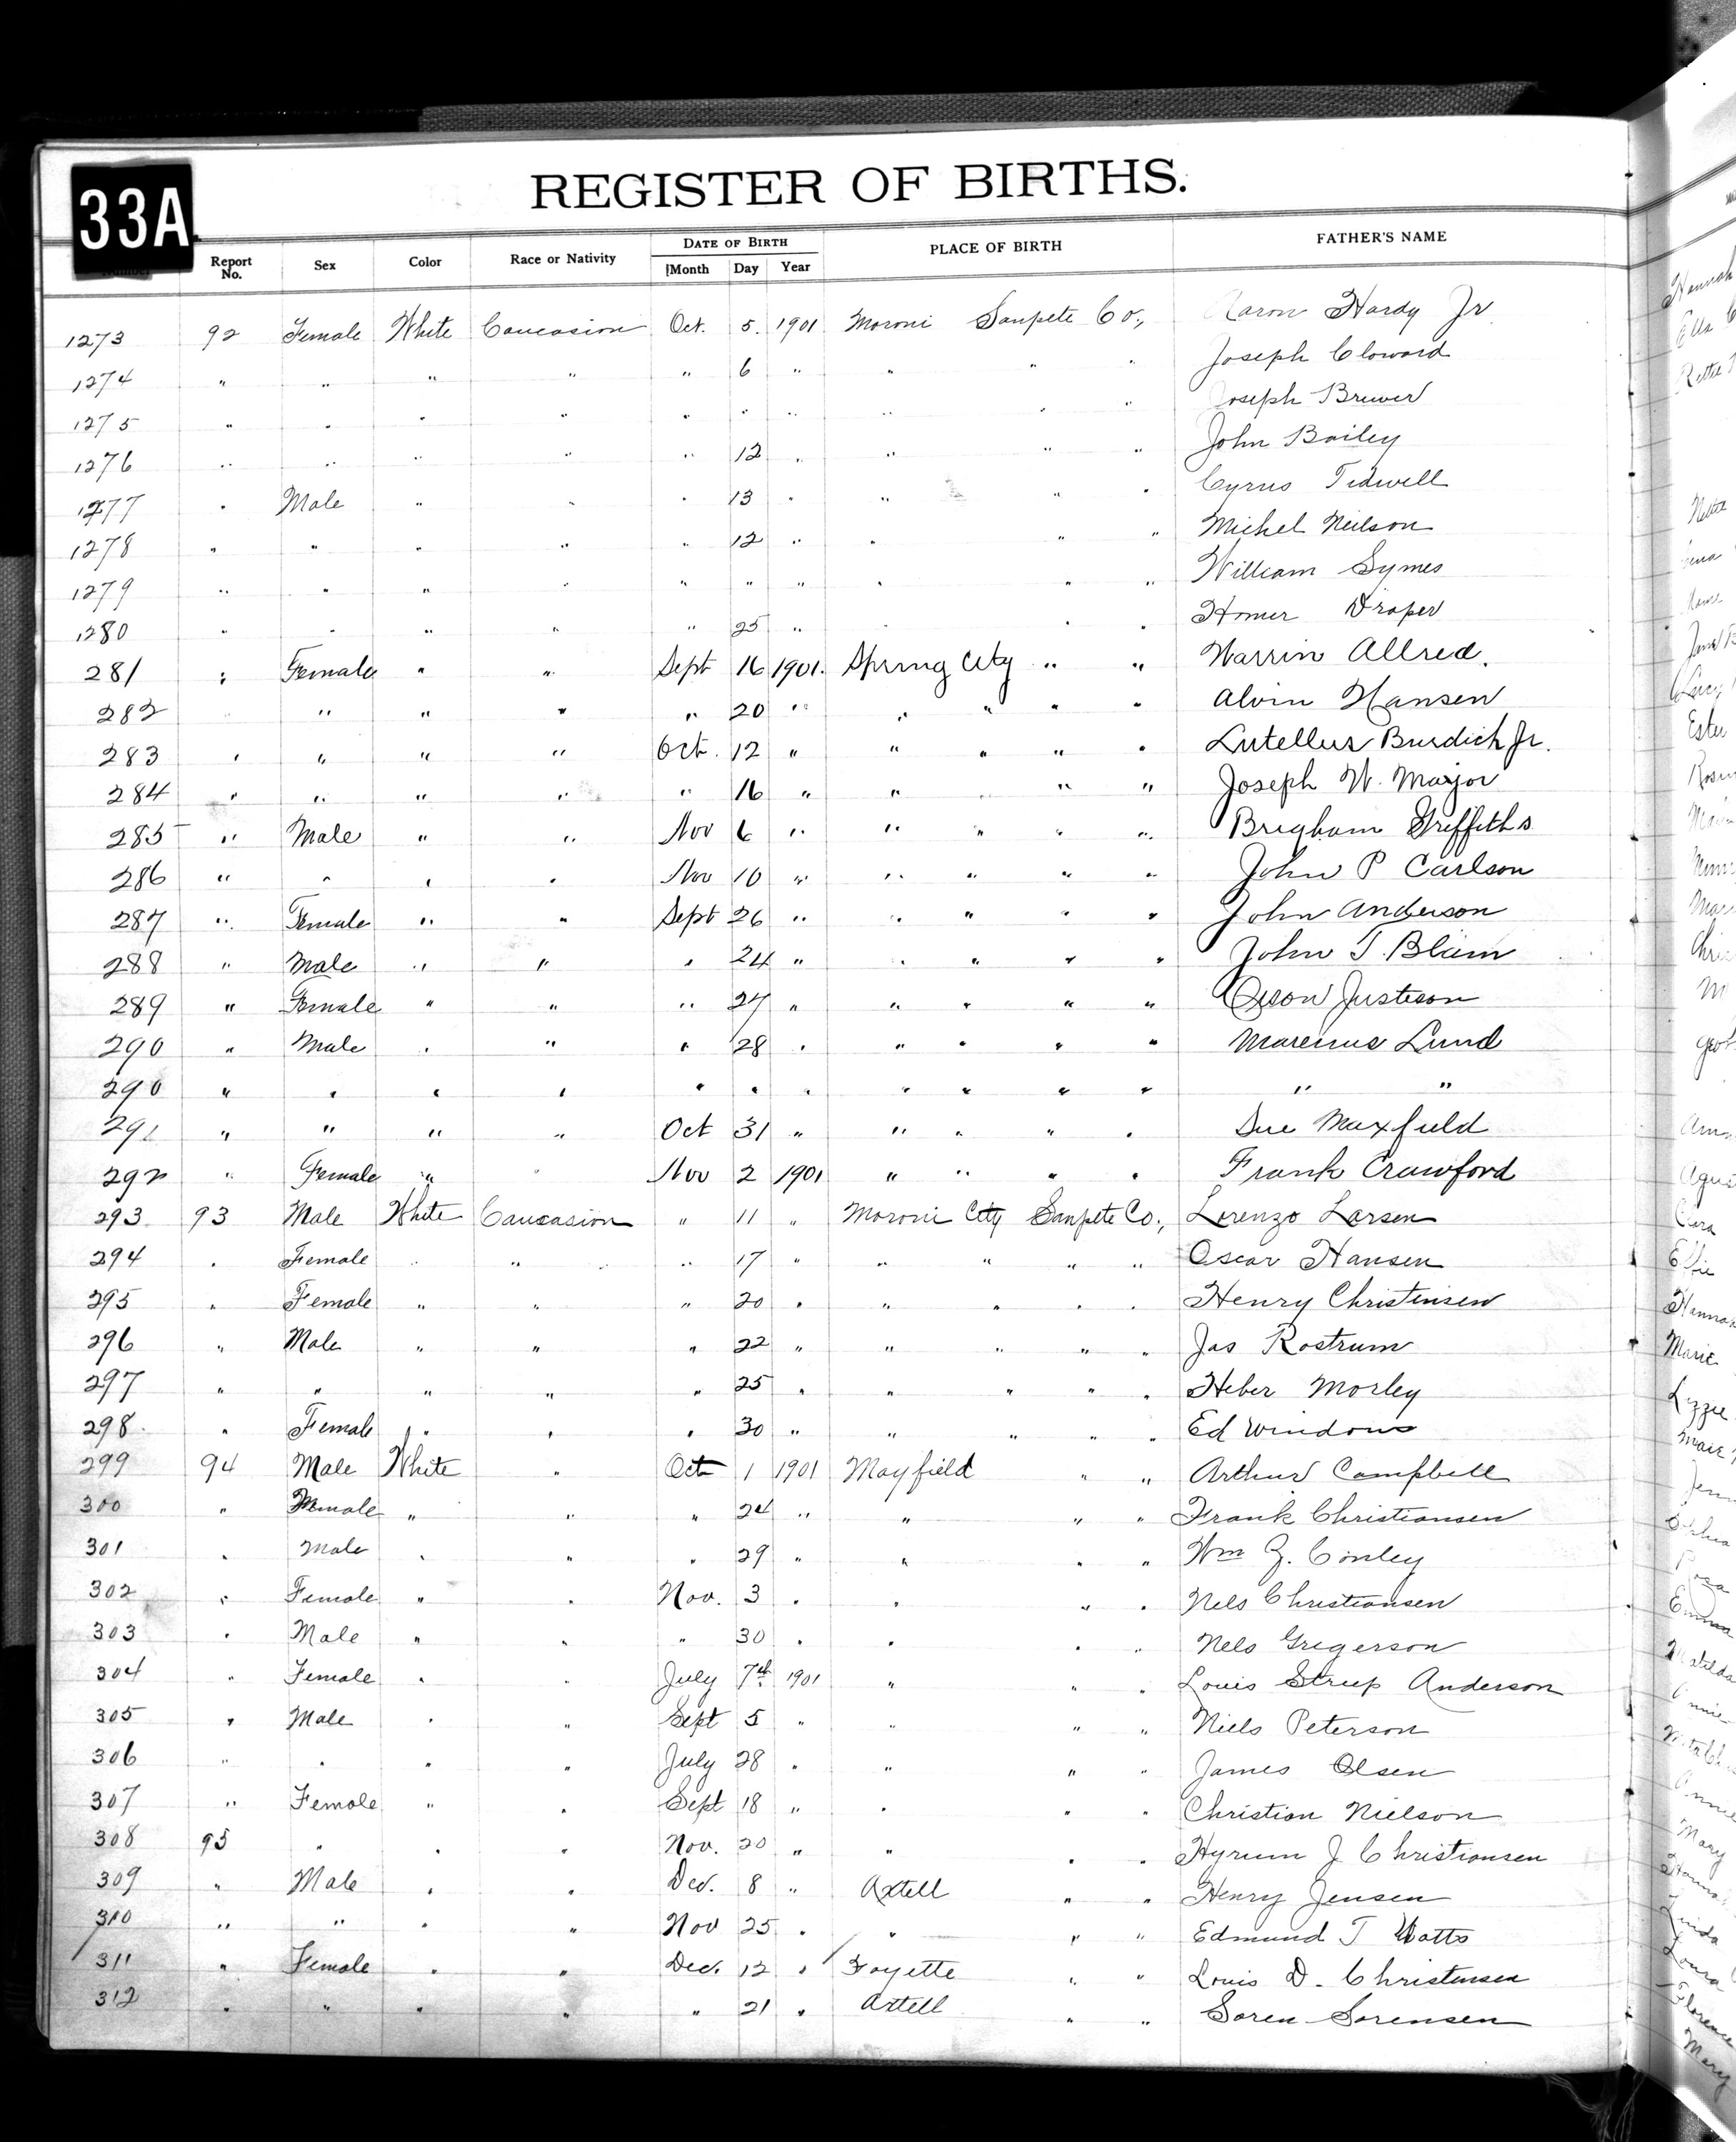 33A
REGISTER OF BIRTHS.
Report No. Sex Color Race or Nativity DATE OF BIRTH Month Day Year PLACE OF BIRTH FATHER'S NAME
1273 92 Female White Caucasion Oct. 5. 1901 Moroni Sanpete Co., Aaron Hardy Jr
1274 " " " " " 6 " " " " Joseph Cloward
1275 " " " " " " " " " " Joseph Brewer
1276 " " " " " 12 " " " " John Bailey
1277 " Male " " " 13 " " " " Cyrus Tidwell
1278 " " " " " 12 " " " " Michel Neilson
1279 " " " " " " " " " " William Symes
1280 " " " " " 25 " " " " Homer Draper
281 " Female " " Sept 16 1901. Spring City " " Warrin Allred.
282 " " " " " 20 " " " " " Alvin Hansen
283 " " " " Oct. 12 " " " " " Lutellus Burdich Jr.
284 " " " " " 16 " " " " " Joseph W. Major
285 " Male " " Nov 6 " " " " " Brigham Griffiths
286 " " " " Nov 10 " " " " " John P Carlson
287 " Female " " Sept 26 " " " " " John Anderson
288 " Male " " " 24 " " " " " John T. Blain
289 " Female " " " 27 " " " " " Orson Justeson
290 " Male " " " 28 " " " " " Marenus Lund
290 " " " " " " " " " " " " "
291 " " " " Oct 31 " " " " " Due Maxfield
292 " Female " " Nov 2 1901 " " " " Frank Crawford
293 93 Male White Caucasion " 11 " Moroni City Sanpete Co., Lorenzo Larsen
294 " Female " " " 17 " " " " " Oscar Hansen
295 " Female " " " 20 " " " " " Henry Christensen
296 " Male " " " 22 " " " " " Jas Rostrum
297 " " " " " 25 " " " " " Heber Morley
298 " Female " " " 30 " " " " " Ed Windows
299 94 Male White " Oct 1 1901 Mayfield " " Arthur Campbell
300 " Female " " " 24 " " " " Frank Christiansen
301 " Male " " " 29 " " " " Wm Z. Conley
302 " Female " " Nov. 3 " " " " Nels Christiansen
303 " Male " " " 30 " " " " Nels Gregerson
304 " Female " " July 7th 1901 " " " Louis Strup Anderson
305 " Male " " Sept 5 " " " " Niels Peterson
306 " " " " July 28 " " " " James Olsen
307 " Female " " Sept 18 " " " " Christian Nielson
308 95 " " " Nov. 20 " " " " Hyrum J Christiansen
309 " Male " " Dec. 8 " Axtell " " Henry Jensen
310 " " " " Nov 25 " " " " Edmund T Watts
311 " Female " " Dec. 12 " Fayette " " Louis D. Christensen
312 " " " " " 21 " Axtell " " Soren Sorensen